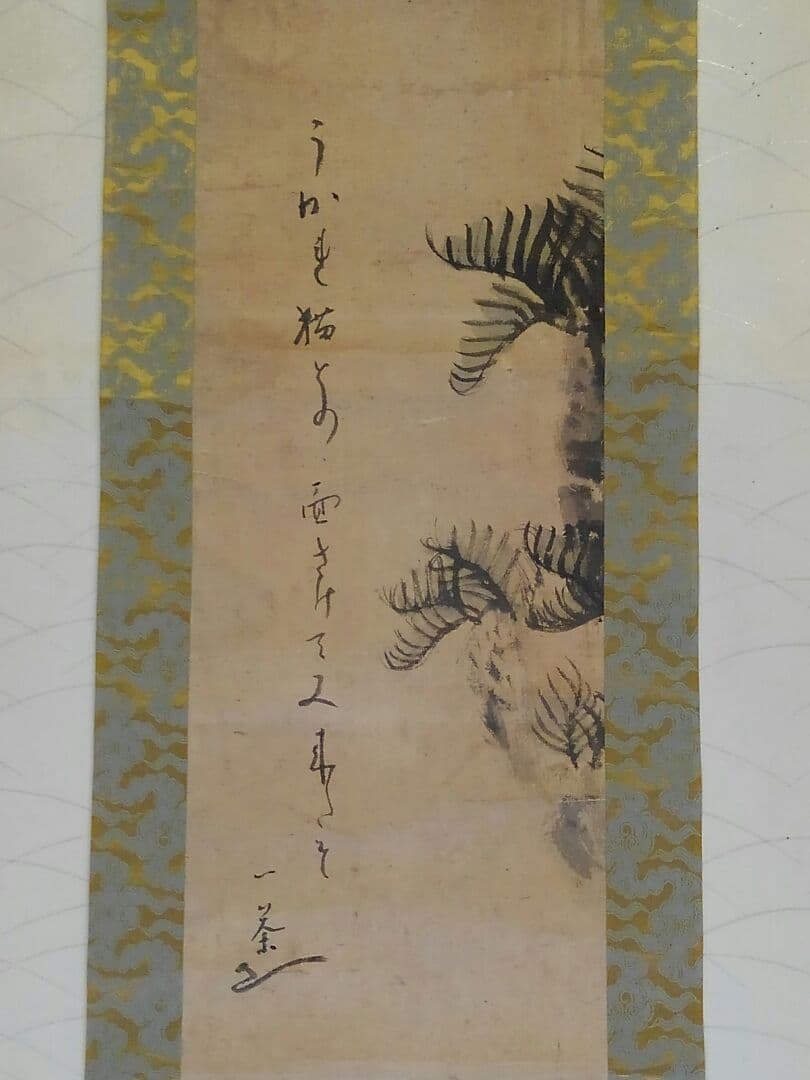 うかれ猫との面さけて又来たそ
一茶